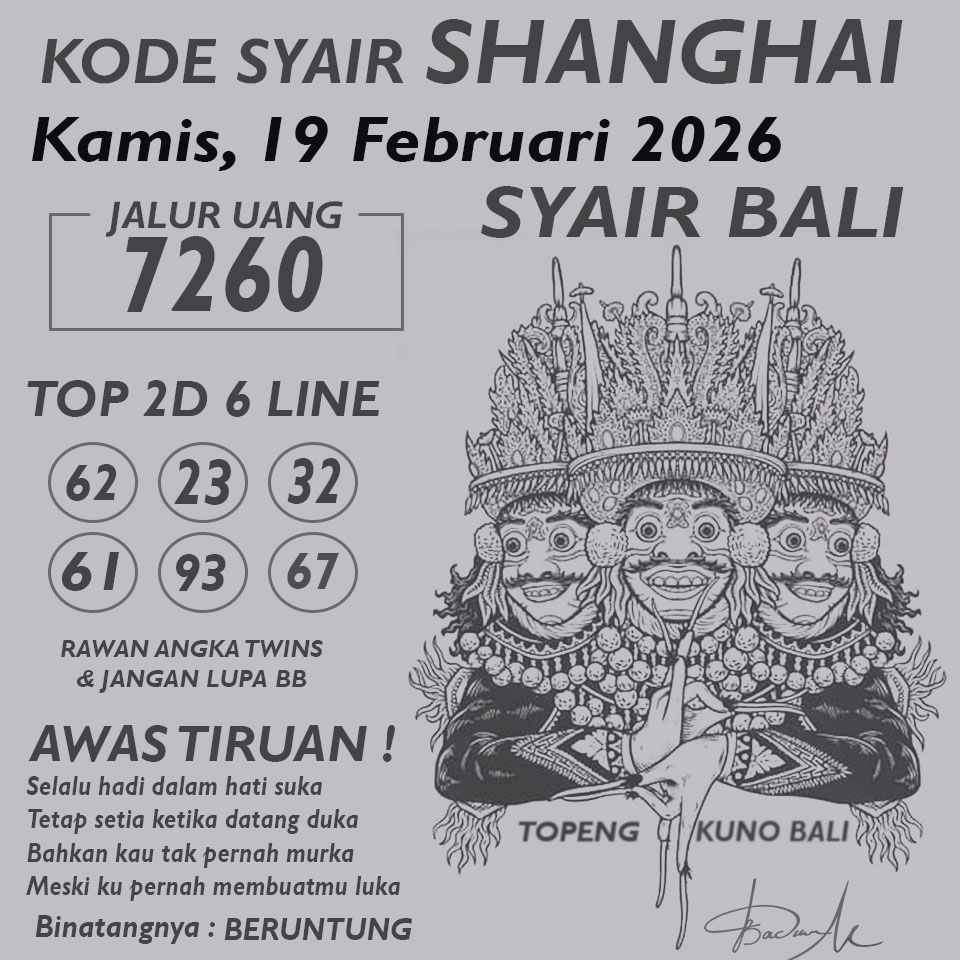 KODE SYAIR SHANGHAI
Kamis, 19 Februari 2026
SYAIR BALI
JALUR UANG
7260
TOP 2D 6 LINE
62 23 32
61 93 67
RAWAN ANGKA TWINS
& JANGAN LUPA BB
AWAS TIRUAN !
Selalu hadi dalam hati suka
Tetap setia ketika datang duka
Bahkan kau tak pernah murka
Meski ku pernah membuatmu luka
Binatangnya : BERUNTUNG
TOPENG KUNO BALI